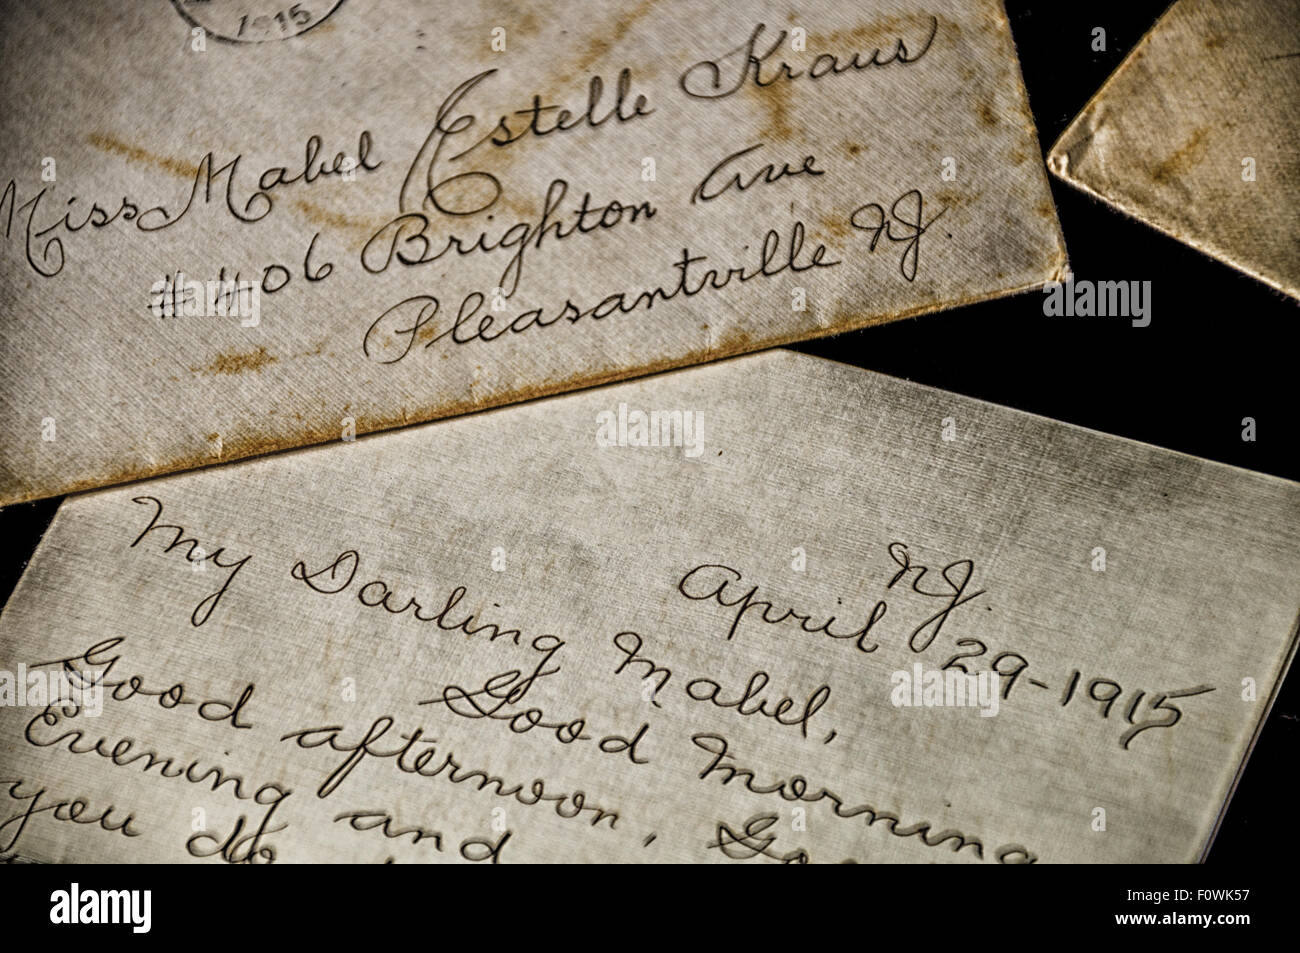 1915
Miss Mabel Estelle Kraus
#406 Brighton Ave
Pleasantville NJ.
NJ.
April 29-1915
My Darling Mabel,
Good Morning
Good afternoon, Good
Evening and
you do
alamy
Image ID: F0WK57
www.alamy.com